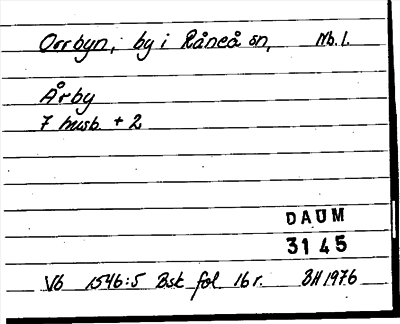 Orrbyn, by i Råneå sn, Nb. l.
Årby
7 husb. + 2
DAUM
3145
Vb 1546:5 Bsk fol 16 r. BH 1976